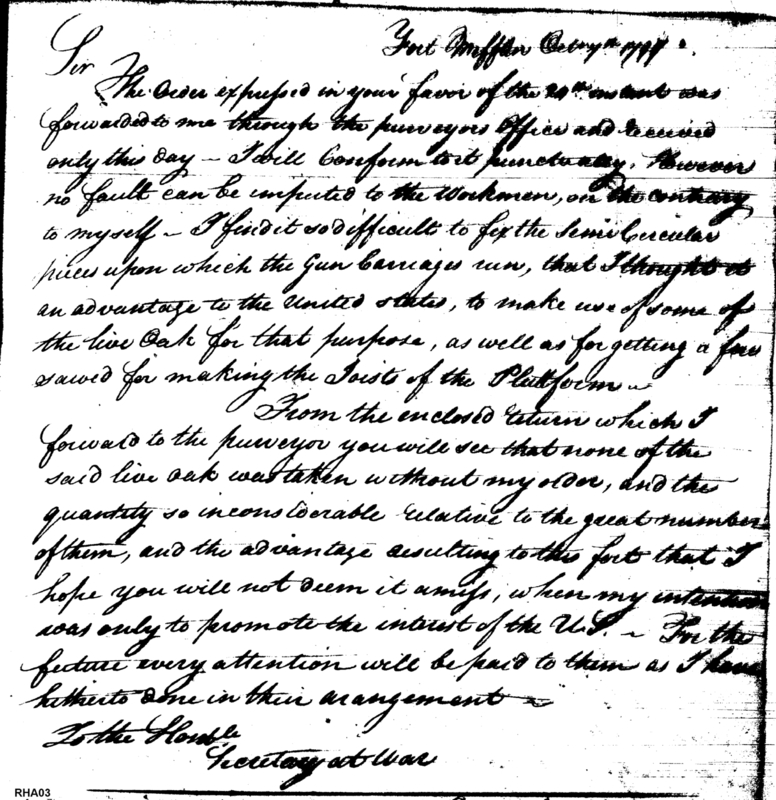 Fort Mifflin Octor 7th 1797.
Sir
The Order expressed in your favor of the instant was
forwarded to me through the purveyors Office and received
only this day – I will Conform to it punctually. However
no fault can be imputed to the Workmen, on the contrary
to myself – I find it so difficult to fix the Semi Circular
pieces upon which the Gun Carriages run, that I thought it
an advantage to the United states, to make use of some of
the live Oak for that purpose, as well as for getting a few
sawed for making the Joists of the Platform –
From the enclosed return which I
forward to the purveyor you will see that none of the
said live oak was taken without my order, and the
quantity so inconsiderable relative to the great number
of them, and the advantage resulting to this fort that I
hope you will not deem it amiss, when my intention
was only to promote the interest of the U.S. – For the
future every attention will be paid to them as I have
hitherto done in their arangement –
To the Honble
Secretary at War
RHA03